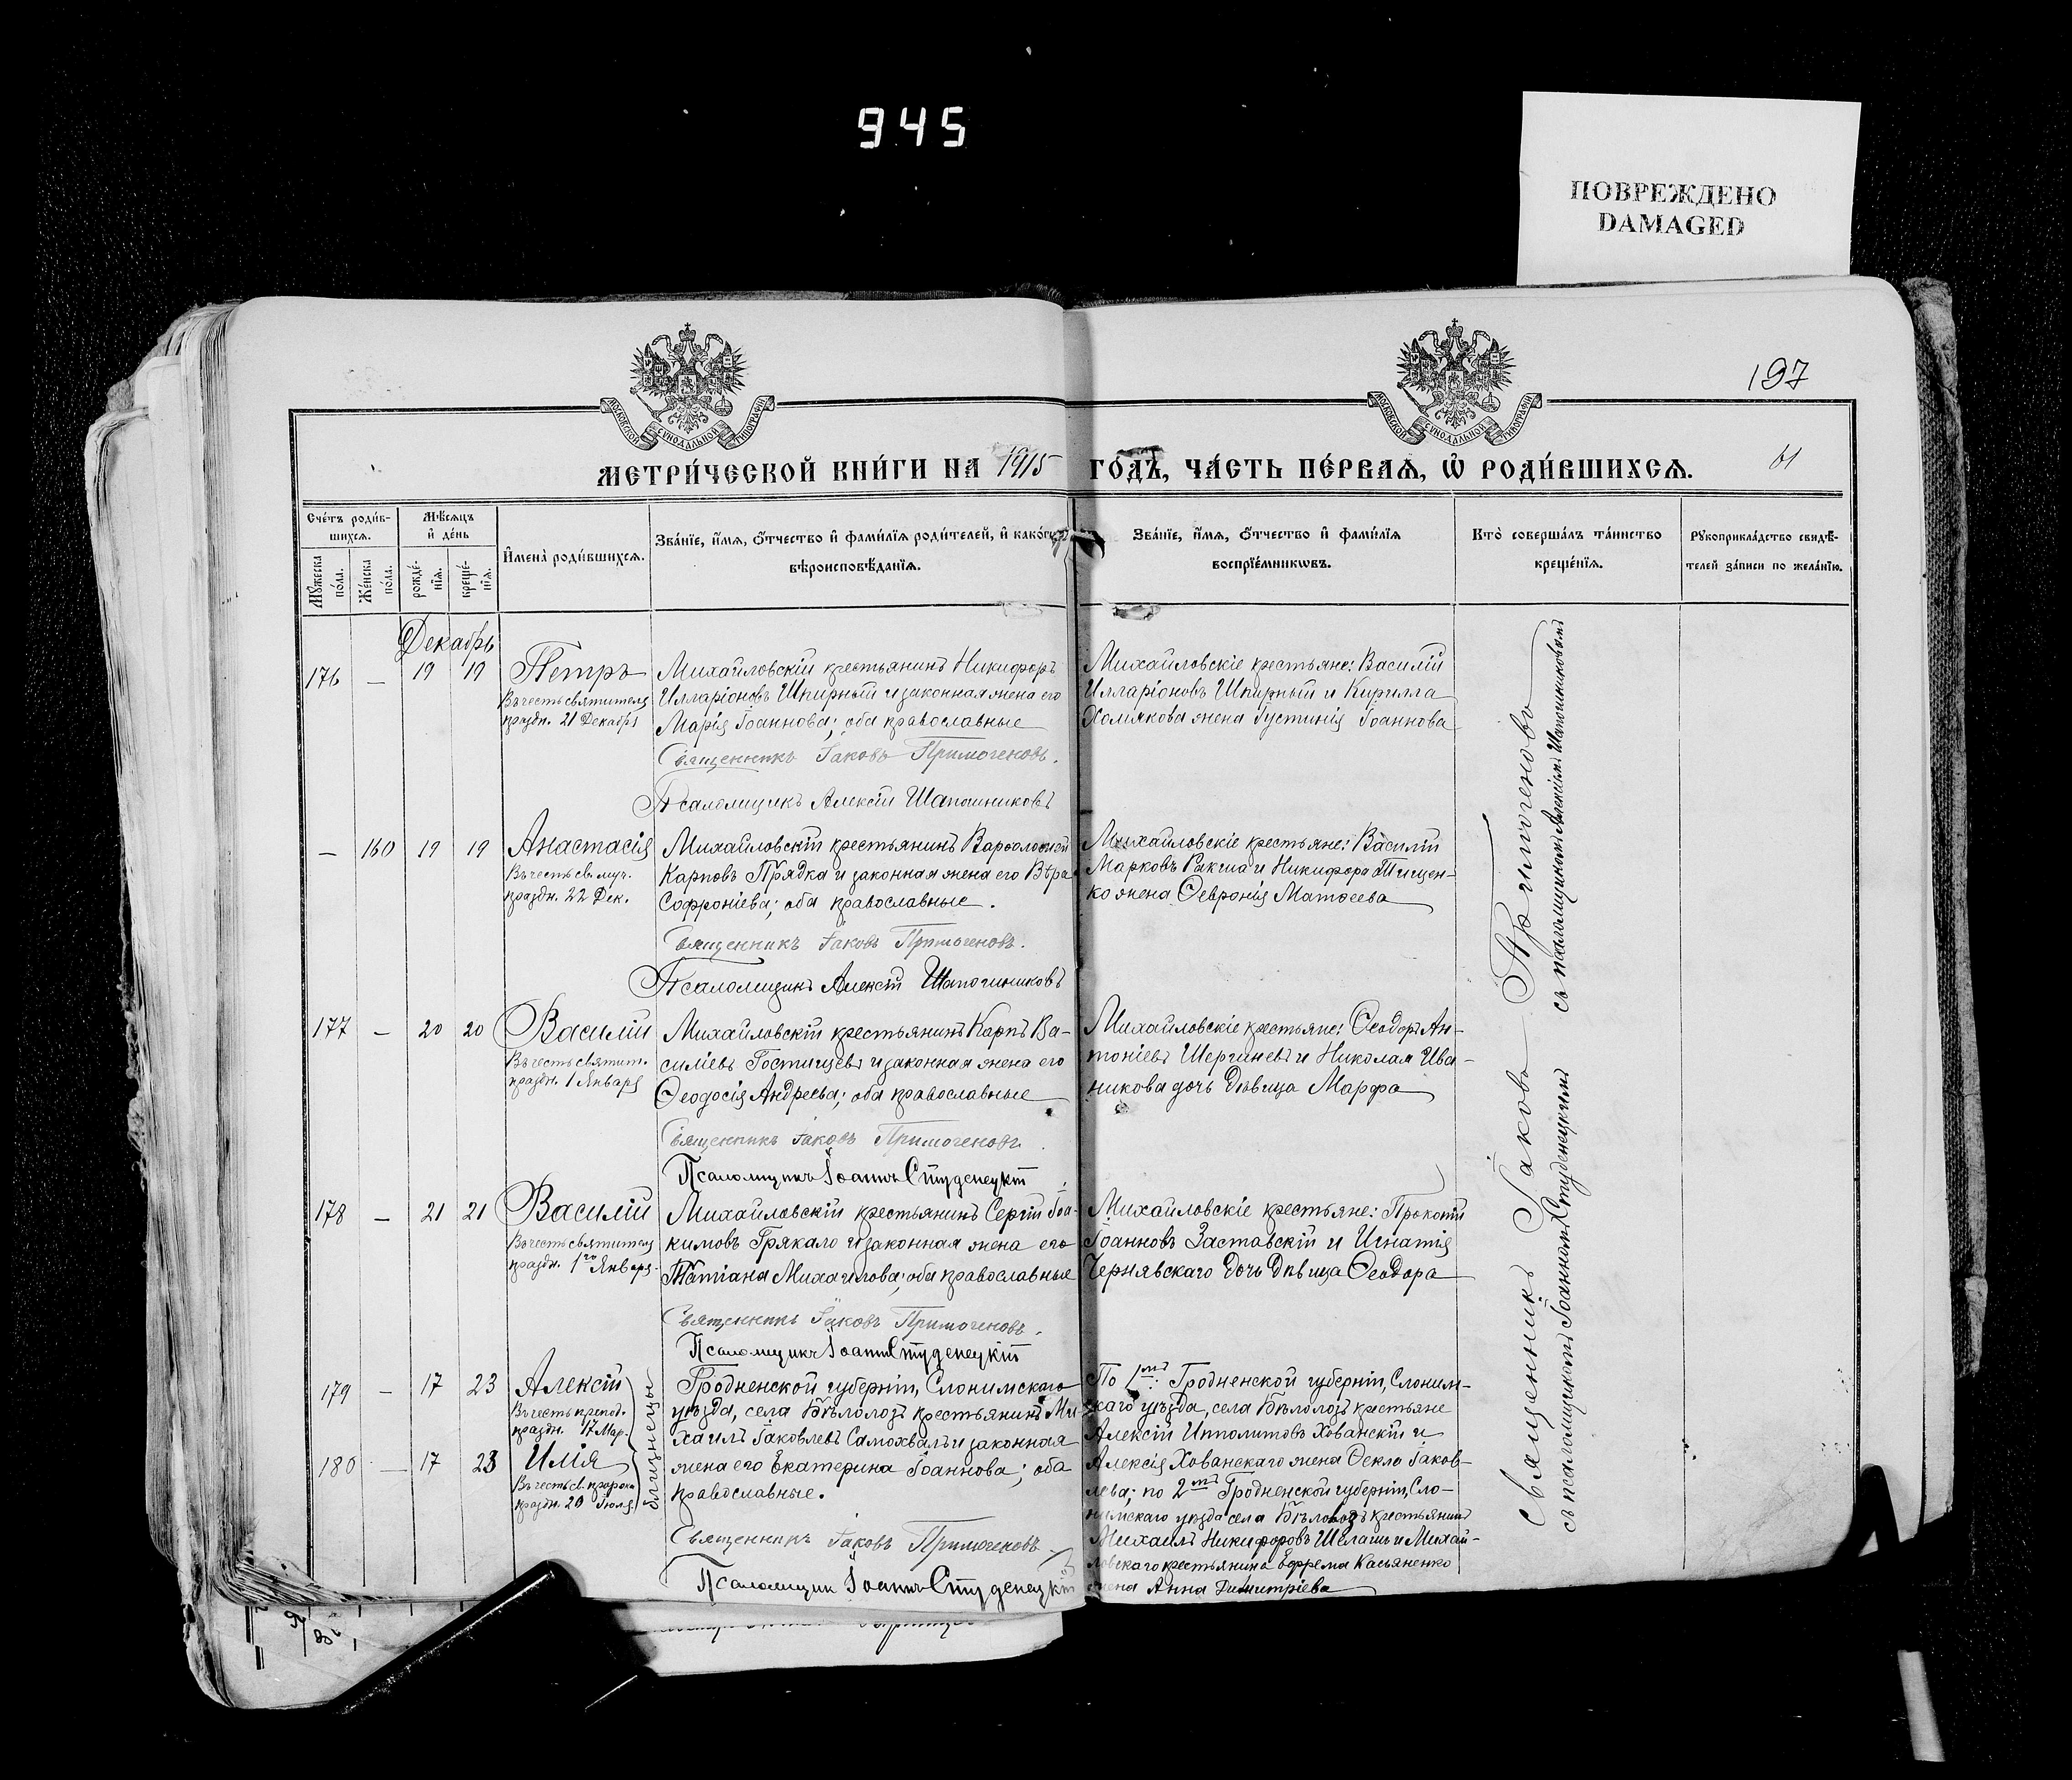 945
ПОВРЕЖДЕНО
DAMAGED
197
МОСКОВСКОЙ СѴНОДАЛЬНОЙ ТИПОГРАФІИ
МОСКОВСКОЙ СѴНОДАЛЬНОЙ ТИПОГРАФІИ
МЕТРИ́ЧЕСКОЙ КНИ́ГИ НА 1915 ГО́ДЪ, ЧА́СТЬ ПЕ́РВАѦ, Ѡ҆ РОДИ́ВШИХСѦ. 61
Сче́тъ роди́в-
шихсѧ.
Мꙋ́жеска по́ла.
Же́нска по́ла.
Мѣ́сѧцъ
и҆ де́нь
рожде́-
нїѧ.
креще́-
нїѧ.
И҆мена̀ роди́вшихсѧ.
Зва́нїе, и҆́мѧ, ѻ҆́тчество и҆ фами́лїѧ роди́телей, и҆ како́гѡ
вѣроисповѣ́данїѧ.
Зва́нїе, и҆́мѧ, ѻ҆́тчество и҆ фами́лїѧ
воспрїе́мникѡвъ.
Кто̀ соверша́лъ та́инство
креще́нїѧ.
Рꙋкоприкла́дство свидѣ́-
телей за́писи по жела́нїю.
Декабрь
176 — 19 19 Петръ
Въ честь святителя
праздн. 21 Декабря
Михайловскій крестьянинъ Никифоръ
Илларіоновъ Шпирный и законная жена его
Марія Іоаннова; оба православные
Священникъ Іаковъ Примогеновъ.
Псаломщикъ Алексій Шапошниковъ
Михайловскіе крестьяне: Василій
Илларіоновъ Шпирный и Кирилла
Хомякова жена Іустинія Іоаннова
— 160 19 19 Анастасія
Въ честь св. муч.
праздн. 22 Дек.
Михайловскій крестьянинъ Варѳоломей
Карповъ Прядка и законная жена его Вѣра
Софроніева; оба православные.
Священникъ Іаковъ Примогеновъ.
Псаломщикъ Алексій Шапошниковъ
Михайловскіе крестьяне: Василій
Марковъ Ракша и Никифора Тищен-
ко жена Ѳевронія Матѳеева
177 — 20 20 Василій
Въ честь святит.
праздн. 1 Января
Михайловскій крестьянинъ Карпъ Ва-
силіевъ Гостищевъ и законная жена его
Ѳеодосія Андреева; оба православные
Священникъ Іаковъ Примогеновъ.
Псаломщикъ Іоаннъ Студенецкій
Михайловскіе крестьяне: Ѳеодоръ Ан-
тоніевъ Шергиневъ и Николая Ива-
никова дочь дѣвица Марфа
178 — 21 21 Василій
Въ честь святителя
праздн. 1го Января
Михайловскій крестьянинъ Сергій Іоа-
кимовъ Грякало и законная жена его
Татіана Михаилова; оба православные
Священникъ Іаковъ Примогеновъ.
Псаломщикъ Іоаннъ Студенецкій
Михайловскіе крестьяне: Прокопій
Іоанновъ Заставскій и Игнатія
Чернявскаго дочь дѣвица Ѳеодора
179 — 17 23 Алексій
Въ честь препод.
праздн. 17 Мар.
180 — 17 23 Илія
Въ честь св. пророка
праздн. 20 Іюля
близнецы
Гродненской губерніи, Слонимскаго
уѣзда, села Бѣлолозъ крестьянинъ Ми-
хаилъ Іаковлевъ Самохвалъ и законная
жена его Екатерина Іоаннова; оба
православные.
Священникъ Іаковъ Примогеновъ
Псаломщикъ Іоаннъ Студенецкій
По 1мъ: Гродненской губерніи, Слоним-
скаго уѣзда, села Бѣлолозъ крестьяне
Алексій Ипполитовъ Хованскій и
Алексія Хованскаго жена Ѳекла Іаков-
лева; по 2мъ Гродненской губерніи, Сло-
нимскаго уѣзда села Бѣлолозъ крестьянинъ
Михаилъ Никифоровъ Шелашъ и Михай-
ловскаго крестьянина Ефрема Касьяненко
жена Анна Димитріева
Священникъ Іаковъ Примогеновъ
съ псаломщикомъ Іоанномъ Студенецкимъ
съ псаломщикомъ Алексіемъ Шапошниковымъ